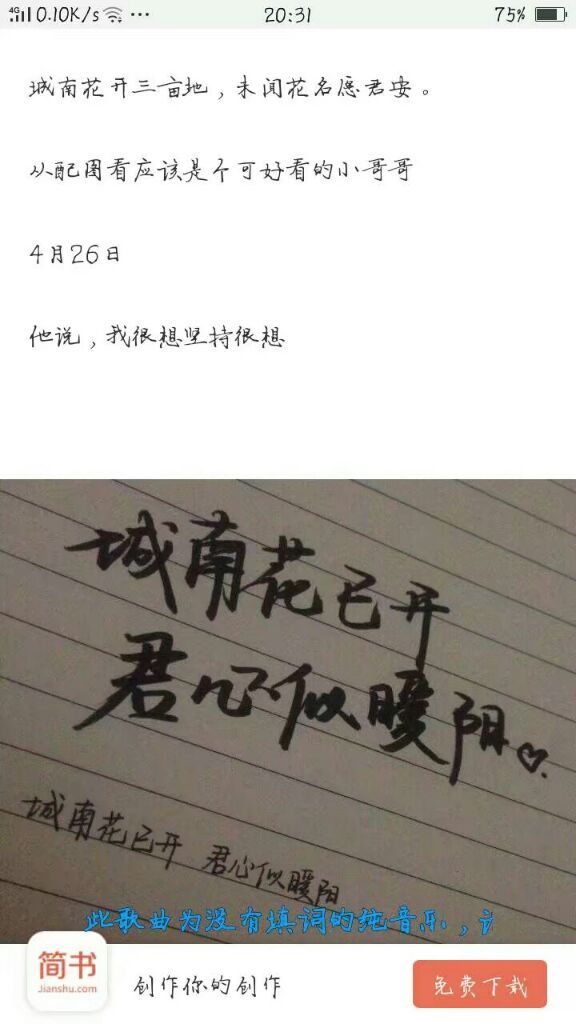 4G 0.10K/s 20:31 75%
城南花开三亩地，未闻花名愿君安。
从配图看应该是个可好看的小哥哥
4月26日
他说，我很想坚持很想
城南花已开
君心似暖阳
城南花已开 君心似暖阳
此歌曲为没有填词的纯音乐，
简书
Jianshu.com
创作你的创作
免费下载